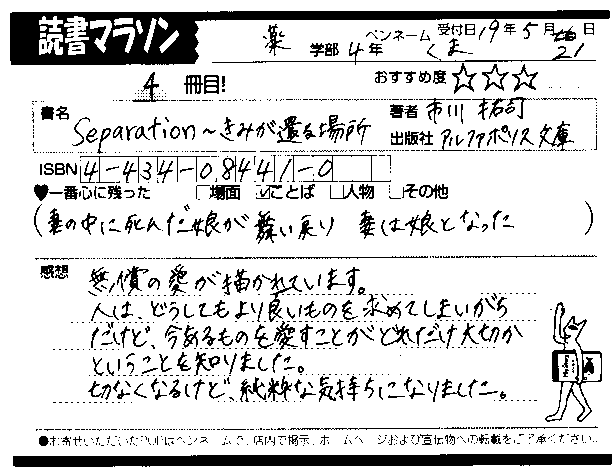 読書マラソン
薬 学部 4年 ペンネーム くま 受付日 19年 5月 21日
4 冊目! おすすめ度 ☆☆☆
書名 Separation～きみが還る場所
著者 市川 拓司
出版社 アルファポリス文庫
ISBN 4-434-08441-0
♥一番心に残った □場面 ☑ことば □人物 □その他
(妻の中に死んだ娘が 舞い戻り 妻は娘となった)
感想 無償の愛が描かれています。
人は、どうしてもより良いものを求めてしまいがち
だけど、今あるものを愛すことがどれだけ大切か
ということを知りました。
切なくなるけど、純粋な気持ちになりました。
●お寄せいただいたPOPはペンネームで、店内で掲示、ホームページおよび宣伝物への転載をご了承ください。